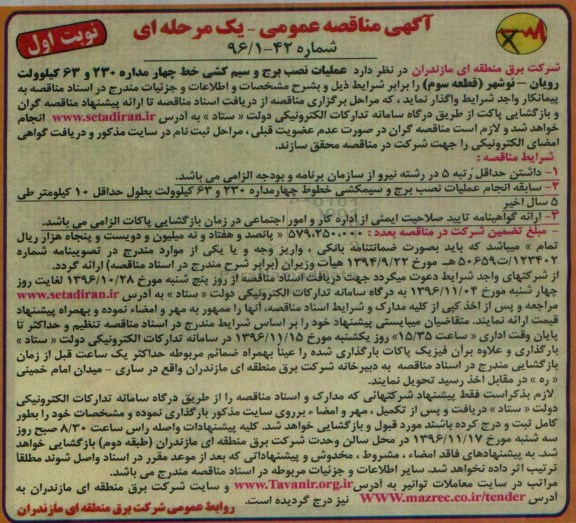 آگهی مناقصه عمومی - یک مرحله ای
نوبت اول
شماره ۴۲-۹۶/۱
شرکت برق منطقه ای مازندران در نظر دارد عملیات نصب برج و سیم کشی خط چهار مداره ۲۳۰ و ۶۳ کیلوولت
رویان – نوشهر (قطعه سوم) را برابر شرایط ذیل و بشرح مشخصات و اطلاعات و جزئیات مندرج در اسناد مناقصه به
پیمانکار واجد شرایط واگذار نماید ، که مراحل برگزاری مناقصه از دریافت اسناد مناقصه تا ارائه پیشنهاد مناقصه گران
و بازگشایی پاکت از طریق درگاه سامانه تدارکات الکترونیکی دولت « ستاد » به ادرس www.setadiran.ir انجام
خواهد شد و لازم است مناقصه گران در صورت عدم عضویت قبلی ، مراحل ثبت نام در سایت مذکور و دریافت گواهی
امضای الکترونیکی را جهت شرکت در مناقصه محقق سازند.
شرایط مناقصه :
۱- داشتن حداقل رتبه ۵ در رشته نیرو از سازمان برنامه و بودجه الزامی می باشد.
۲- سابقه انجام عملیات نصب برج و سیمکشی خطوط چهارمداره ۲۳۰ و ۶۳ کیلوولت بطول حداقل ۱۰ کیلومتر طی
۵ سال اخیر
۳- ارائه گواهینامه تایید صلاحیت ایمنی از اداره کار و امور اجتماعی در زمان بازگشایی پاکات الزامی می باشد.
- مبلغ تضمین شرکت در مناقصه بعدد : ۵۷۹,۲۵۰,۰۰۰ « پانصد و هفتاد و نه میلیون و دویست و پنجاه هزار ریال
تمام » میباشد که باید بصورت ضمانتنامه بانکی ، واریز وجه و یا یکی از موارد مندرج در تصویبنامه شماره
۱۲۳۴۰۲/ت۵۰۶۵۹ هـ مورخ ۱۳۹۴/۹/۲۲ هیأت وزیران (برابر شرح مندرج در اسناد مناقصه) ارائه گردد.
از شرکتهای واجد شرایط دعوت میگردد جهت دریافت اسناد مناقصه از روز پنج شنبه مورخ ۱۳۹۶/۱۰/۲۸ لغایت روز
چهار شنبه مورخ ۱۳۹۶/۱۱/۰۴ به درگاه سامانه تدارکات الکترونیکی دولت « ستاد » به آدرس www.setadiran.ir
مراجعه و پس از اخذ کپی از کلیه مدارک و شرایط اسناد مناقصه، آنها را ممهور به مهر و امضاء نموده و بهمراه پیشنهاد
قیمت ارائه نمایند. متقاضیان میبایستی پیشنهاد خود را بر اساس شرایط مندرج در اسناد مناقصه تنظیم و حداکثر تا
پایان وقت اداری « ساعت ۱۵/۳۵ » روز یکشنبه مورخ ۱۳۹۶/۱۱/۱۵ در سامانه تدارکات الکترونیکی دولت « ستاد »
بارگذاری و علاوه بران فیزیک پاکات بارگذاری شده را عیناً بهمراه ضمائم مربوطه حداکثر یک ساعت قبل از زمان
بازگشایی مندرج در اسناد مناقصه به دبیرخانه شرکت برق منطقه ای مازندران واقع در ساری - میدان امام خمینی
« ره » در مقابل اخذ رسید تحویل نمایند.
لازم بذکراست فقط پیشنهاد شرکتهائی که مدارک و اسناد مناقصه را از طریق درگاه سامانه تدارکات الکترونیکی
دولت « ستاد » دریافت و پس از تکمیل ، مهر و امضاء برروی سایت مذکور بارگذاری نموده و مشخصات خود را بطور
کامل ثبت و درج کرده باشند مورد قبول و بازگشایی خواهد شد. کلیه پیشنهادات واصله راس ساعت ۸/۳۰ صبح روز
سه شنبه مورخ ۱۳۹۶/۱۱/۱۷ در محل سالن وحدت شرکت برق منطقه ای مازندران (طبقه دوم) بازگشایی خواهد
شد. به پیشنهادهای فاقد امضاء ، مشروط ، مخدوش و پیشنهاداتی که بعد از موعد مقرر در اسناد واصل شوند مطلقا
ترتیب اثر داده نخواهد شد. سایر اطلاعات و جزئیات مربوطه در اسناد مناقصه مندرج می باشد.
مراتب در سایت معاملات توانیر به آدرس www.Tavanir.org.ir و سایت شرکت برق منطقه ای مازندران به
آدرس WWW.mazrec.co.ir/tender نیز درج گردیده است.
روابط عمومی شرکت برق منطقه ای مازندران